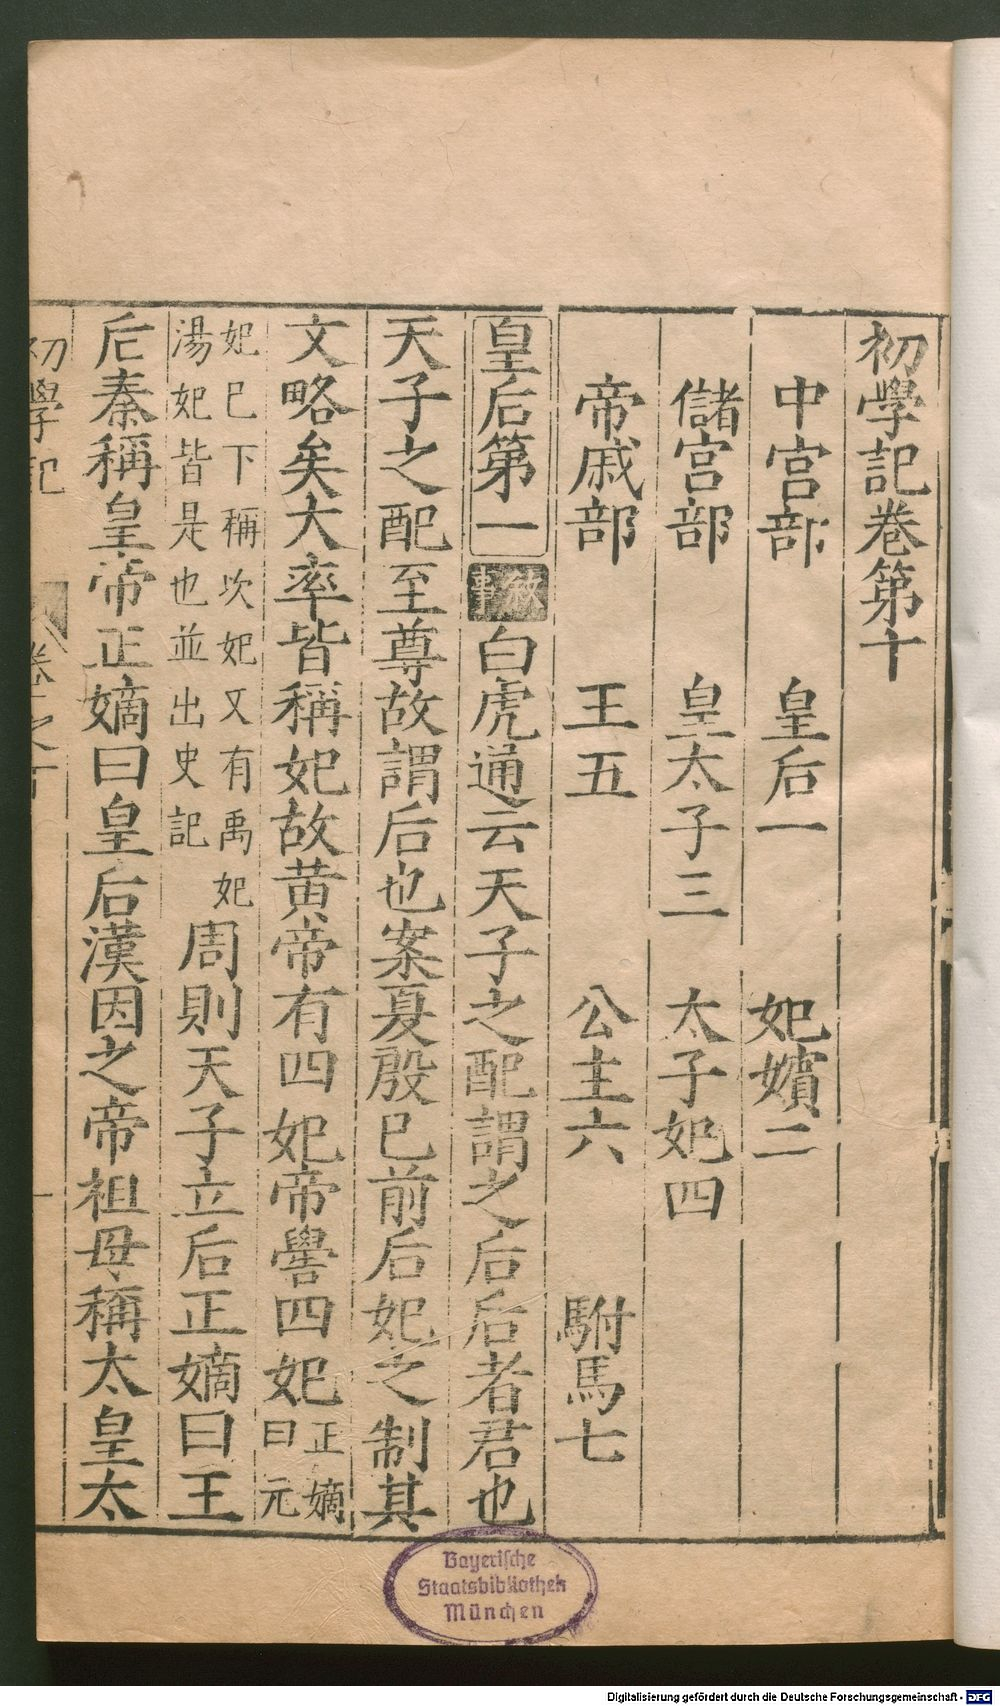 初學記卷第十
中宮部 皇后一 妃嬪二
儲宮部 皇太子三 太子妃四
帝戚部 王五 公主六 駙馬七
皇后第一 敘事 白虎通云天子之配謂之后后者君也
天子之配至尊故謂后也案夏殷已前后妃之制其
文略矣大率皆稱妃故黄帝有四妃帝嚳四妃正嫡曰元
妃已下稱次妃又有禹妃湯妃皆是也並出史記周則天子立后正嫡曰王
后秦稱皇帝正嫡曰皇后漢因之帝祖母稱太皇太
初學記
卷之十
一
Bayerische
Staatsbibliothek
München
Digitalisierung gefördert durch die Deutsche Forschungsgemeinschaft - DFG